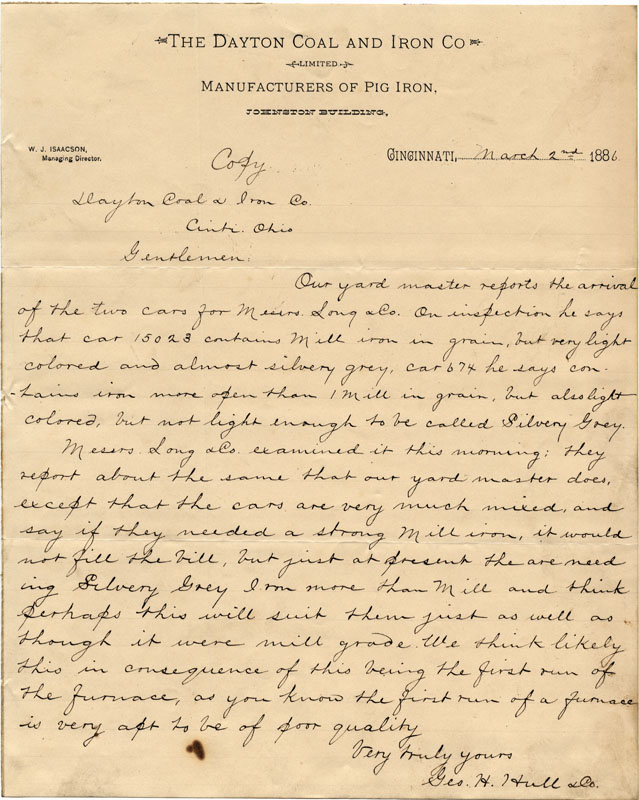 THE DAYTON COAL AND IRON CO
LIMITED.
MANUFACTURERS OF PIG IRON,
JOHNSTON BUILDING,
W. J. ISAACSON,
Managing Director.
CINCINNATI, March 2nd 1886
Copy
Dayton Coal & Iron Co.
Cinti. Ohio
Gentlemen:
Our yard master reports the arrival
of the two cars for Messrs. Long &Co. On inspection he says
that car 15023 contains Mill iron in grain, but very light
colored and almost silvery grey, car 674 he says con-
-tains iron more open than 1 Mill in grain, but also light
colored, but not light enough to be called Silvery Grey.
Messrs. Long &Co. examined it this morning; they
report about the same that our yard master does,
except that the cars are very much mixed, and
say if they needed a strong Mill iron, it would
not fill the bill, but just at present the are need
ing Silvery Grey Iron more than Mill and think
perhaps this will suit them just as well as
though it were mill grade. We think likely
this in consequence of this being the first run of
the furnace, as you know the first run of a furnace
is very apt to be of poor quality
Very truly yours
Geo. H. Hull &Co.